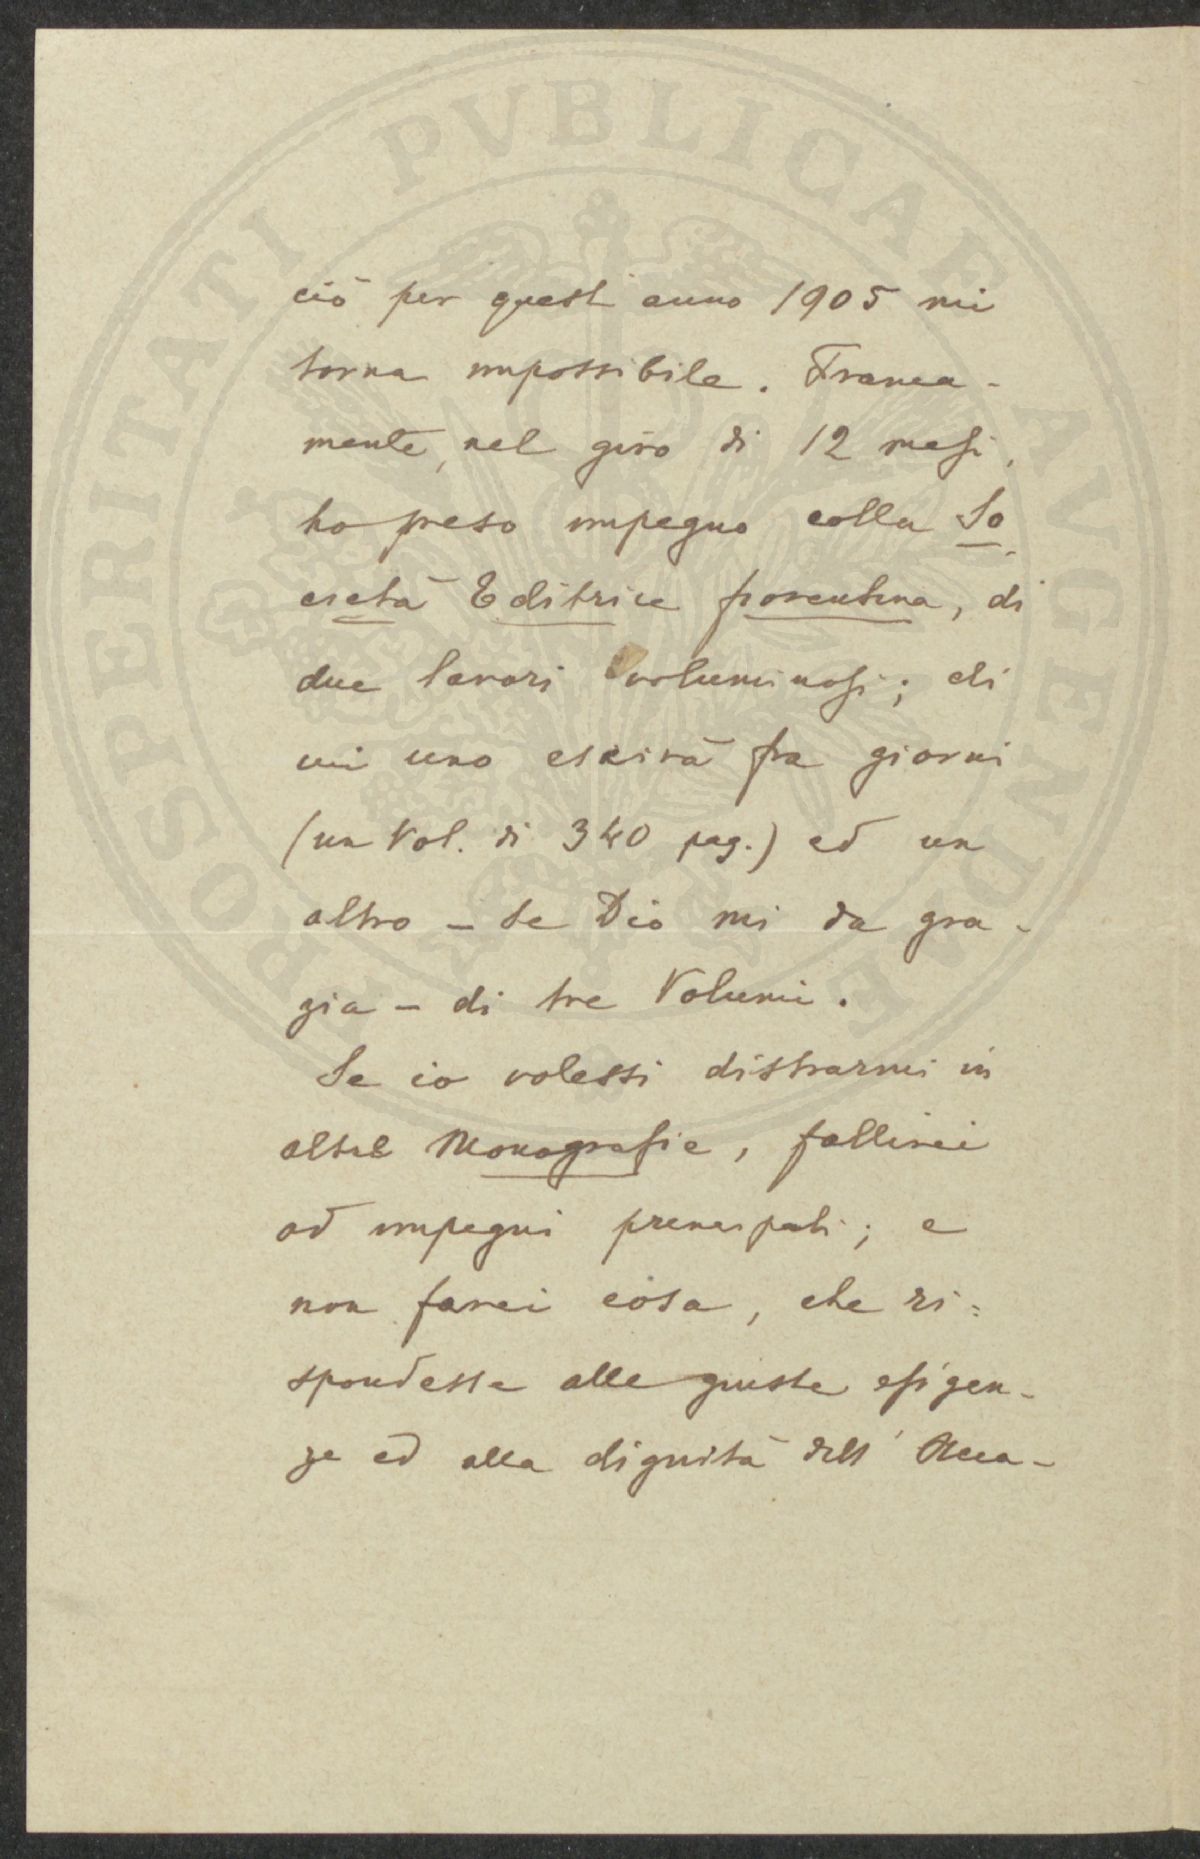 PROSPERITATI PVBLICAE AVGENDAE
ciò per quest anno 1905 mi
torna impossibile. Franca-
mente, nel giro di 12 mesi,
ho preso impegno colla So
cietà Editrice fiorentina, di
due lavori voluminosi; di
cui uno escirà fra giorni
(un Vol. di 340 pag.) ed un
altro – se Dio mi da gra-
zia – di tre Volumi.
Se io volessi distrarmi in
altre Monografie, fallirei
ad impegni principali; e
non farei cosa, che ri=
spondesse alle giuste esigen-
ze ed alla dignità dell' Acca-